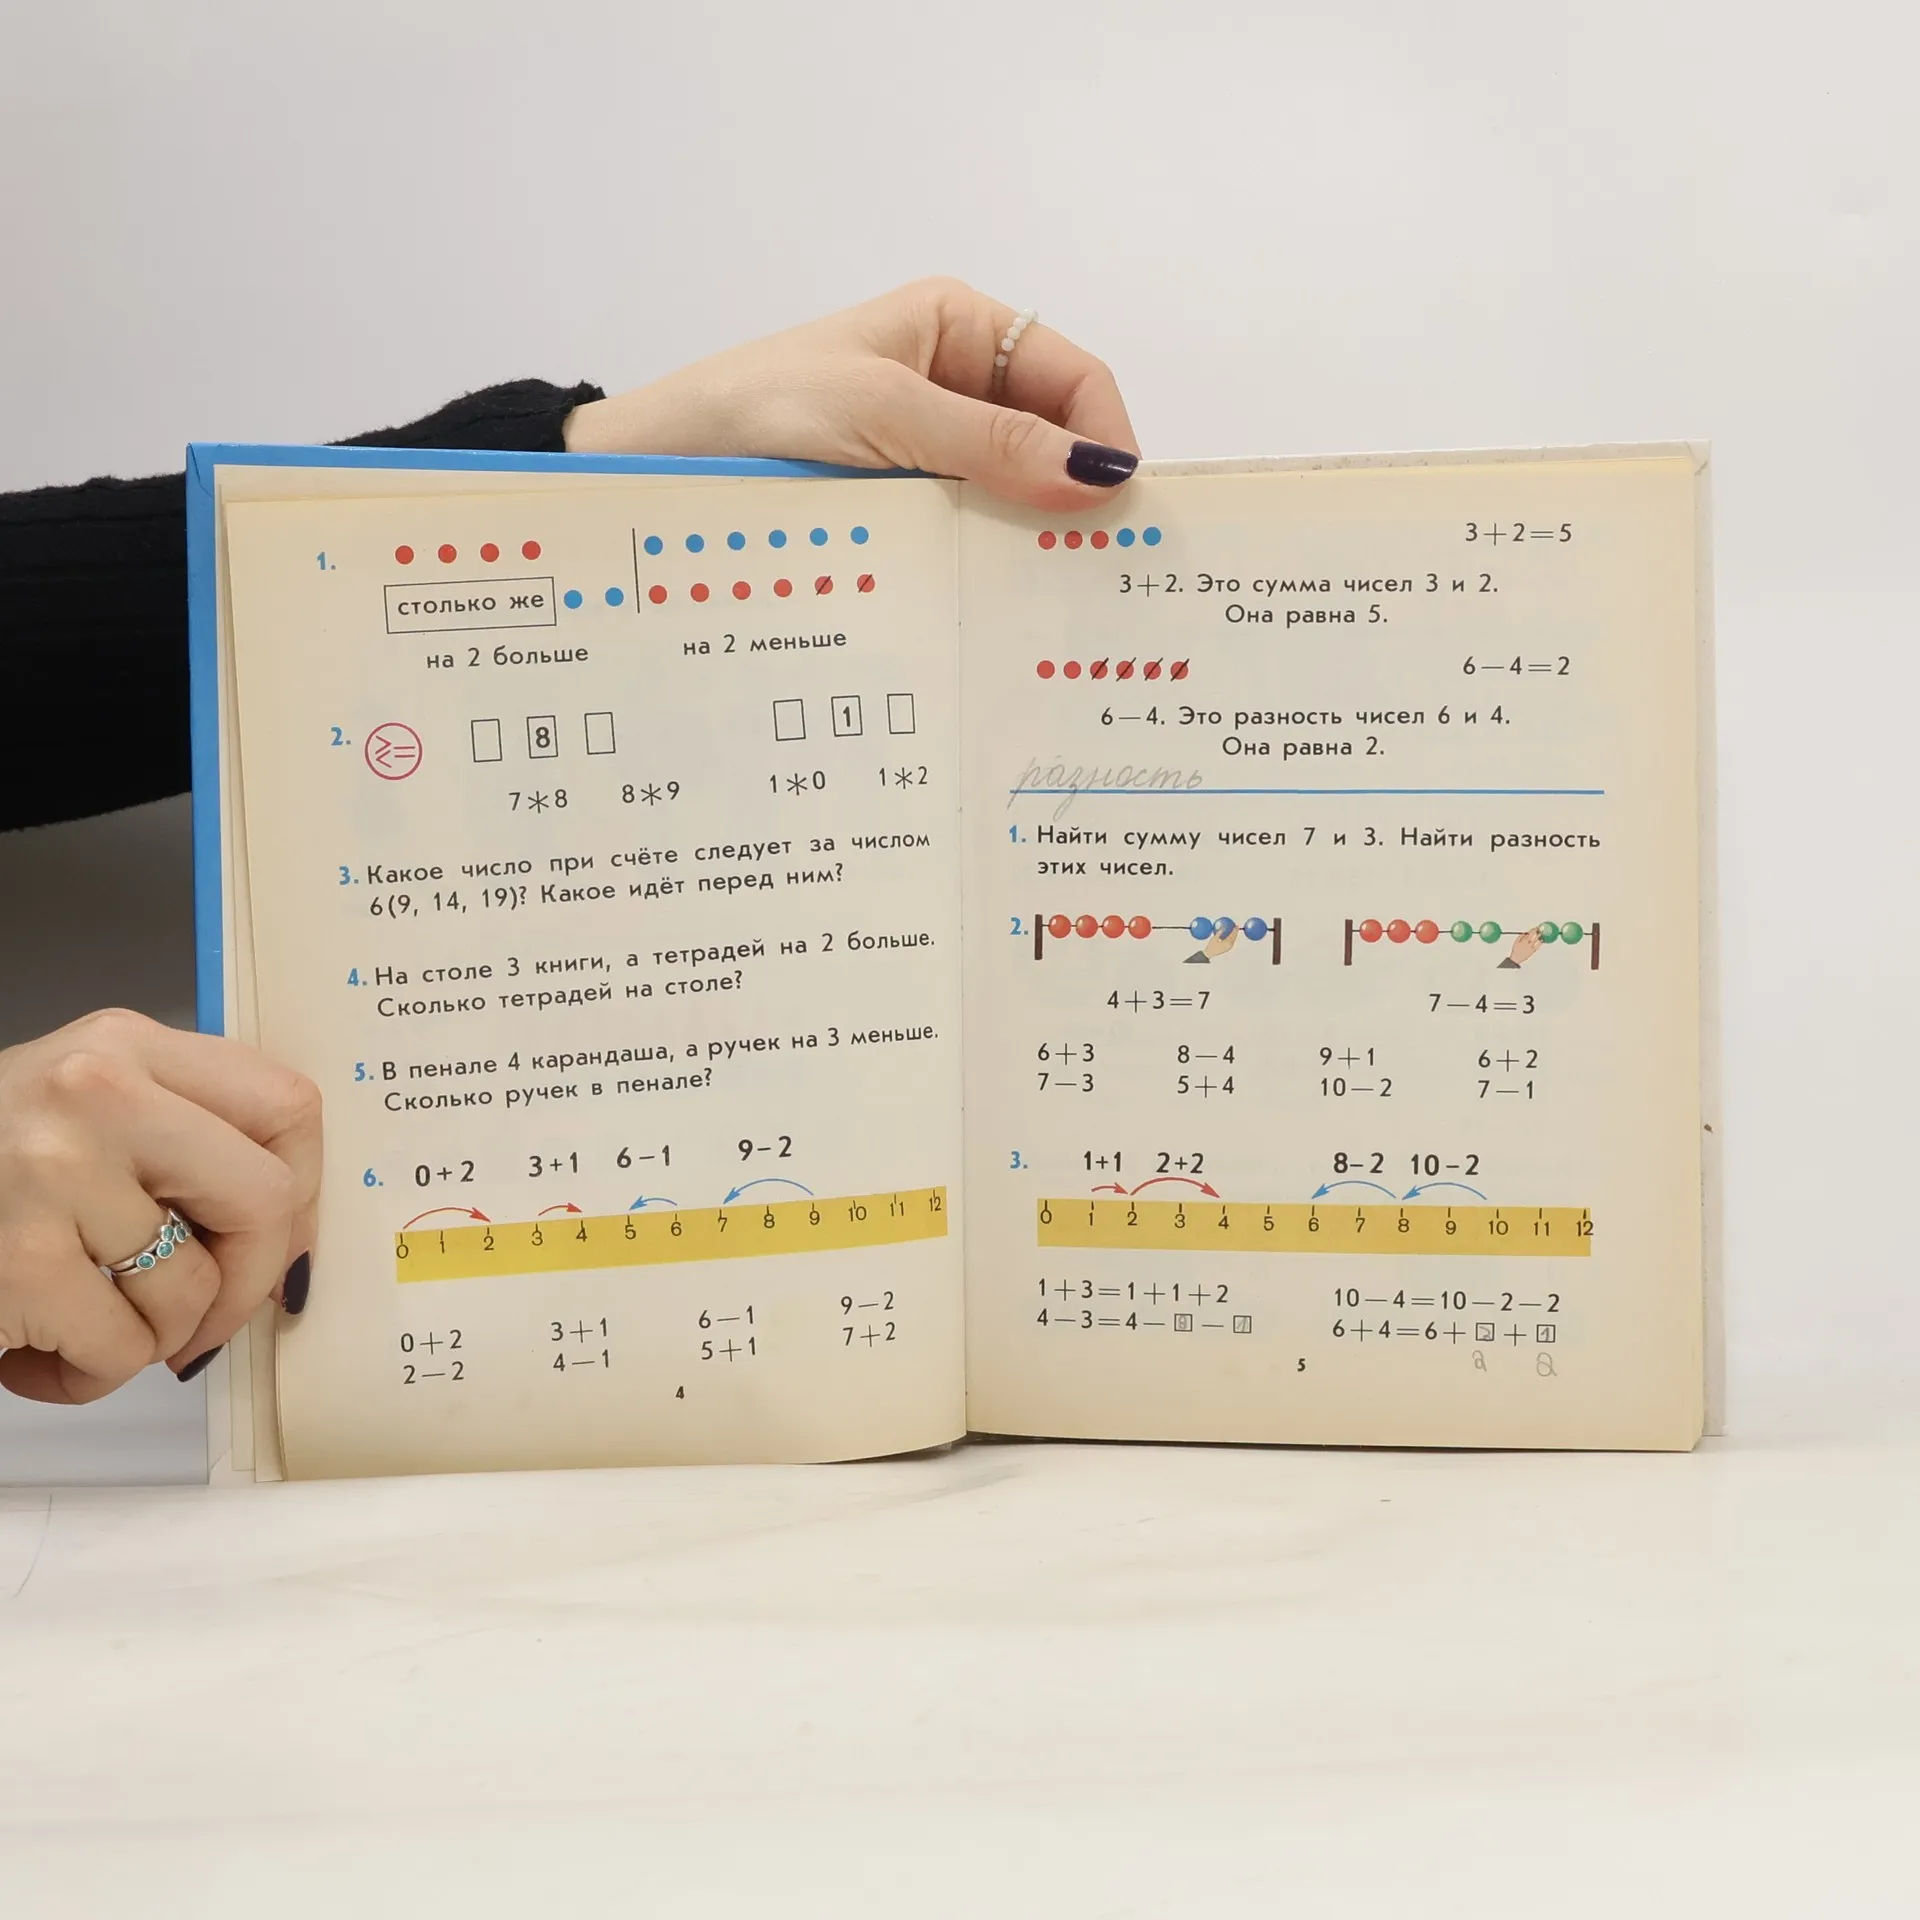 1.
столько же
на 2 больше
на 2 меньше
2. ≥ ≤ =
8
1
7 * 8 8 * 9 1 * 0 1 * 2
3. Какое число при счёте следует за числом
6 (9, 14, 19)? Какое идёт перед ним?
4. На столе 3 книги, а тетрадей на 2 больше.
Сколько тетрадей на столе?
5. В пенале 4 карандаша, а ручек на 3 меньше.
Сколько ручек в пенале?
6. 0+2 3+1 6-1 9-2
0 1 2 3 4 5 6 7 8 9 10 11 12
0+2 3+1 6-1 9-2
2-2 4-1 5+1 7+2
4
3+2=5
3+2. Это сумма чисел 3 и 2.
Она равна 5.
6-4=2
6-4. Это разность чисел 6 и 4.
Она равна 2.
разность
1. Найти сумму чисел 7 и 3. Найти разность
этих чисел.
2.
4+3=7 7-4=3
6+3 8-4 9+1 6+2
7-3 5+4 10-2 7-1
3. 1+1 2+2 8-2 10-2
0 1 2 3 4 5 6 7 8 9 10 11 12
1+3=1+1+2 10-4=10-2-2
4-3=4-□-□ 6+4=6+□+□
2 2
5